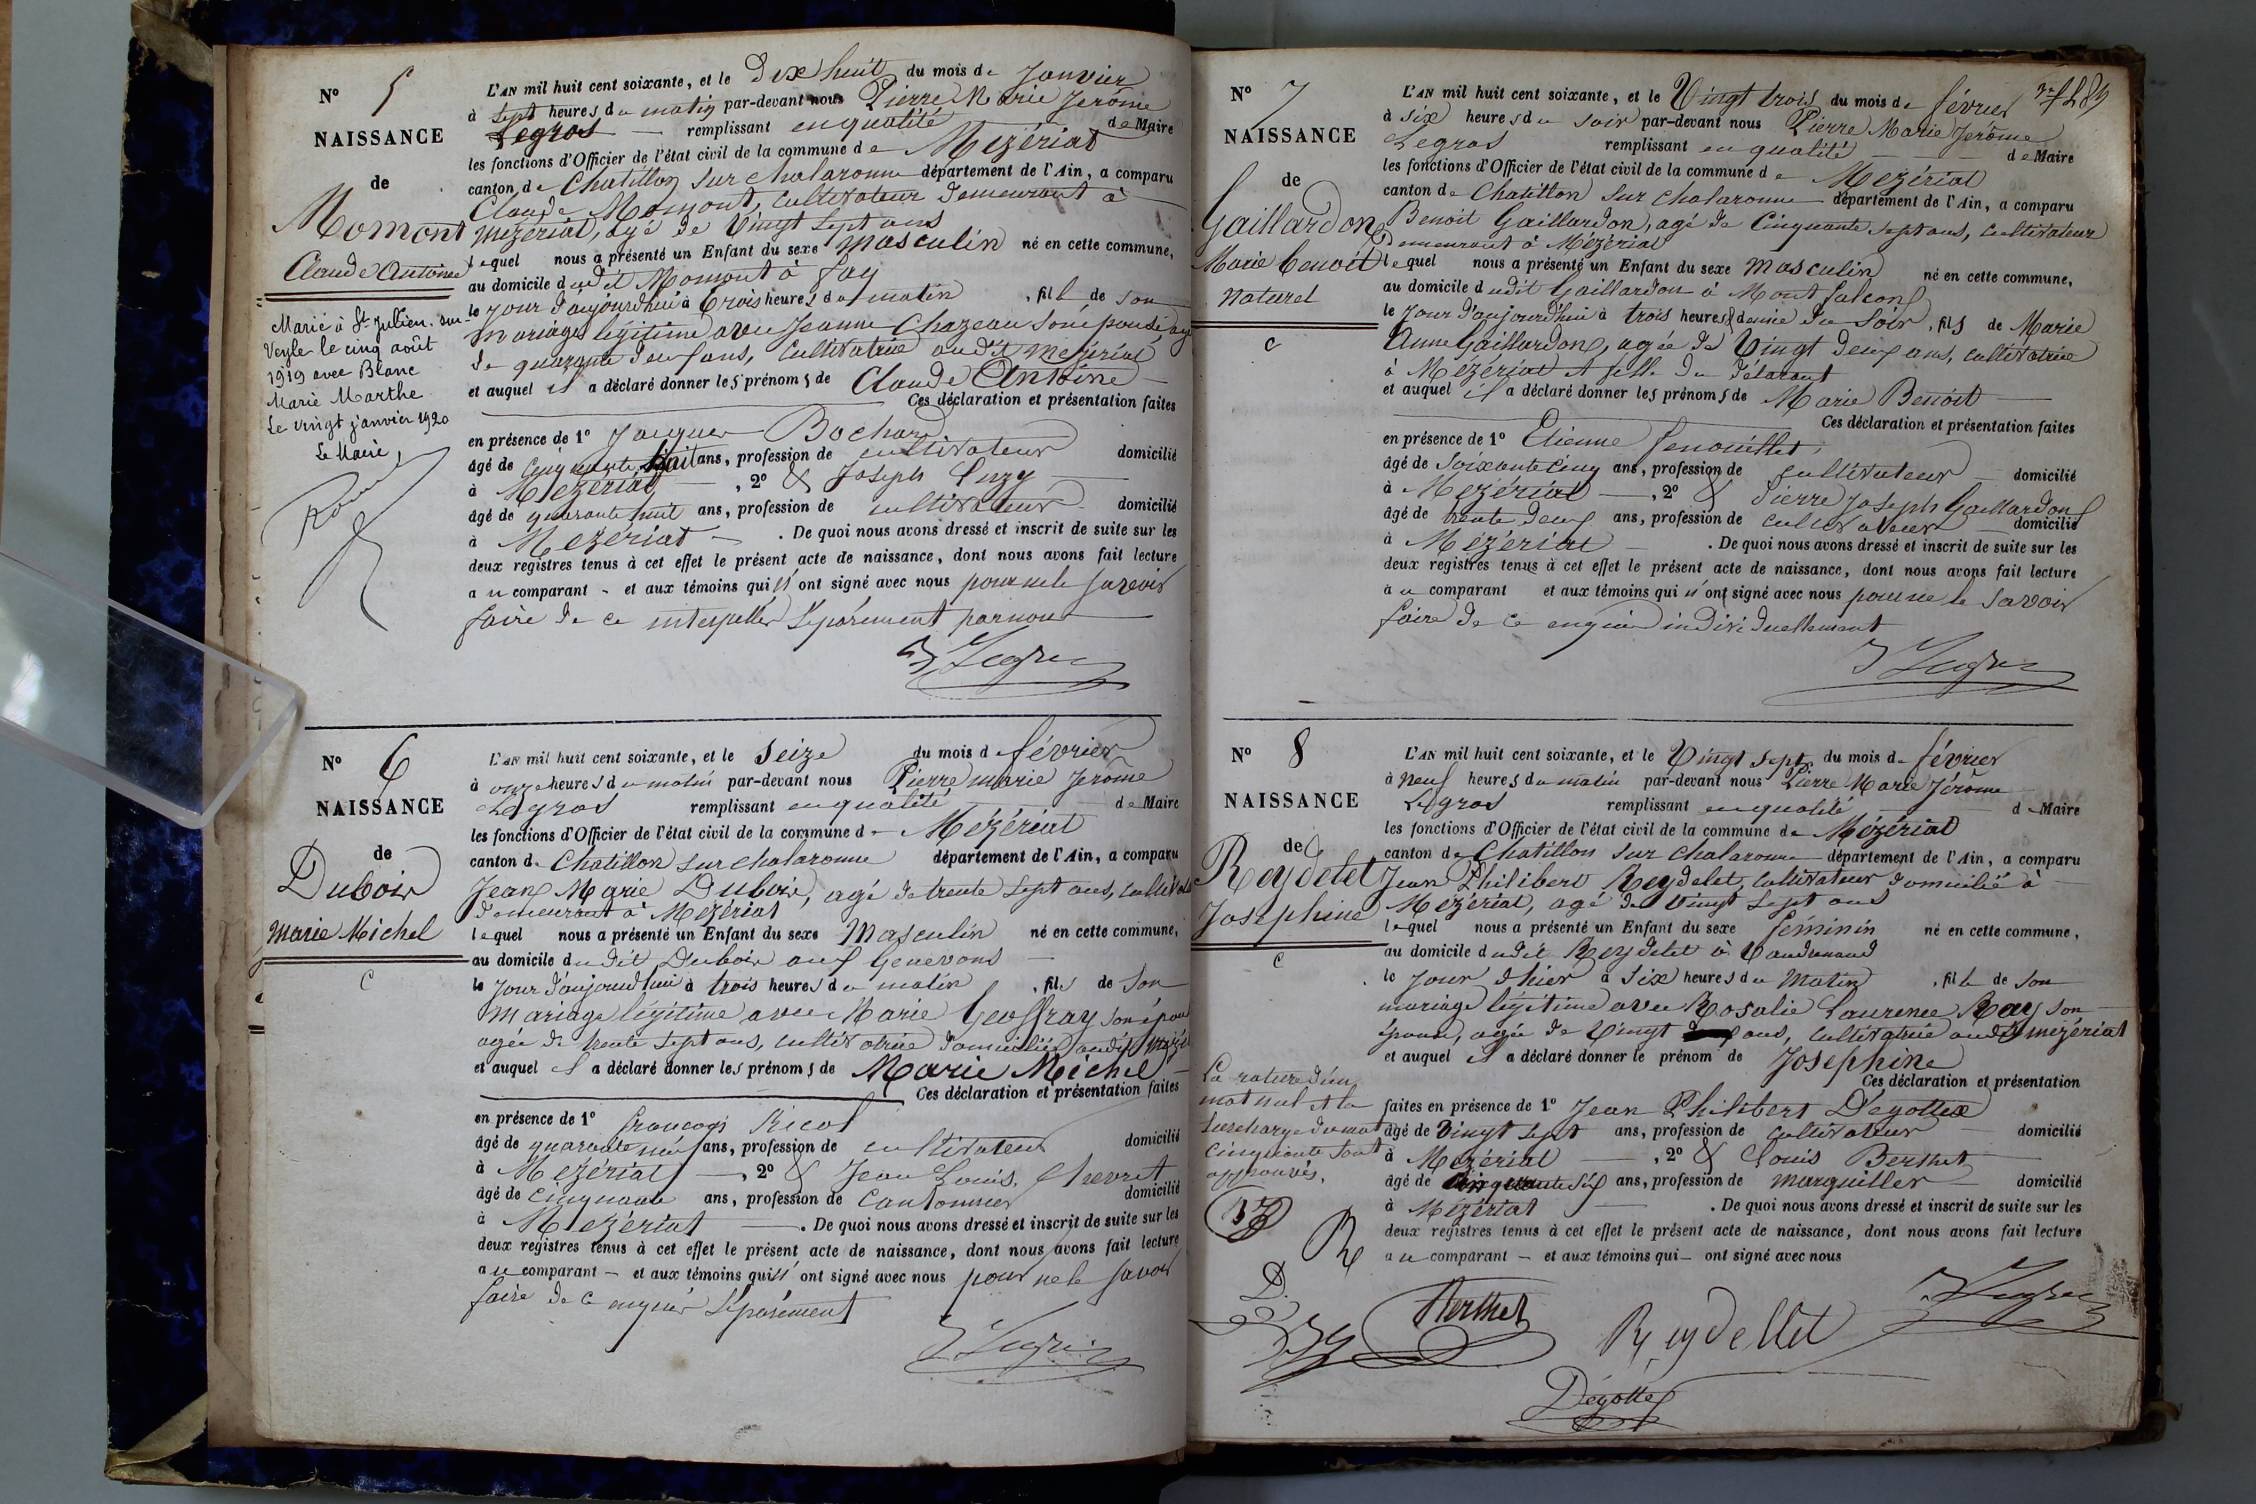 N° 5
NAISSANCE
de
Momont
Claude Antoine
Marié à St Julien-sur-
Veyle le cinq août
1919 avec Blanc
Marie Marthe
Le vingt janvier 1920
Le Maire,
L'AN mil huit cent soixante, et le Dix huit du mois de Janvier
à sept heures du matin par-devant nous Pierre Marie Jérôme
Legros remplissant en qualité de Maire
les fonctions d'Officier de l'état civil de la commune de Mezériat
canton de Chatillon sur chalaronne département de l'Ain, a comparu
Claude Momont, Cultivateur demeurant à
Mezériat, agé de Vingt Sept ans
lequel nous a présenté un Enfant du sexe Masculin né en cette commune,
au domicile dudit Momont à fay
le jour d'aujourdhui à trois heures du matin, fil de son
mariage légitime avec Jeanne Chazeau son épouse agé
de quarante deux ans, Cultivatrice audit Mezériat
et auquel il a déclaré donner les prénoms de Claude Antoine
Ces déclaration et présentation faites
en présence de 1° Jacques Bochard
âgé de cinquante huit ans, profession de cultivateur domicilié
à Mezériat, 2° & Joseph
âgé de quarante huit ans, profession de cultivateur domicilié
à Mezériat. De quoi nous avons dressé et inscrit de suite sur les
deux registres tenus à cet effet le présent acte de naissance, dont nous avons fait lecture
au comparant - et aux témoins qui n'ont signé avec nous pour ne le savoir
faire de ce interpellés Séparément par nous
N° 6
NAISSANCE
de
Dubois
Marie Michel
C
L'AN mil huit cent soixante, et le Seize du mois de février
à onze heures du matin par-devant nous Pierre marie Jérôme
Legros remplissant en qualité de Maire
les fonctions d'Officier de l'état civil de la commune de Mezériat
canton de Chatillon sur chalaronne département de l'Ain, a comparu
Jean Marie Dubois, agé de trente sept ans, cultivat
demeurant à Mezériat
lequel nous a présenté un Enfant du sexe Masculin né en cette commune,
au domicile dudit Dubois aux Genevons
le jour d'aujourdhui à trois heures du matin, fils de Son
mariage légitime avec Marie Geoffray son épou
agée de trente sept ans, cultivatrice domiciliée audit Mezé
et auquel il a déclaré donner les prénoms de Marie Michel
Ces déclaration et présentation faites
en présence de 1° françois Ricol
âgé de quarante neuf ans, profession de cultivateur domicilié
à Mezériat, 2° & Jean Louis, Chevret
âgé de cinquante ans, profession de Cantonnier domicilié
à Mezériat. De quoi nous avons dressé et inscrit de suite sur les
deux registres tenus à cet effet le présent acte de naissance, dont nous avons fait lecture
au comparant - et aux témoins qui n'ont signé avec nous pour ne le savoir
faire de ce enquis Séparément
N° 7
NAISSANCE
de
Gaillardon
Marie benoit
naturel
C
L'AN mil huit cent soixante, et le Vingt trois du mois de février
à six heures du soir par-devant nous Pierre Marie Jérôme
Legros remplissant en qualité de Maire
les fonctions d'Officier de l'état civil de la commune de Mezériat
canton de Chatillon sur chalaronne département de l'Ain, a comparu
Benoit Gaillardon, agé de Cinquante sept ans, cultivateur
demeurant à Mézériat
lequel nous a présenté un Enfant du sexe Masculin né en cette commune,
au domicile dudit Gaillardon à Mont falcon
le jour d'aujourd'hui à trois heures & demie du Soir, fils de Marie
Anne Gaillardon, agée de Vingt deux ans, cultivatrice
à Mézériat et fille du déclarant
et auquel il a déclaré donner les prénoms de Marie Benoit
Ces déclaration et présentation faites
en présence de 1° Etienne fenouillet,
âgé de soixante cinq ans, profession de cultivateur domicilié
à Mezériat, 2° & Pierre Joseph Gaillardon
âgé de trente deux ans, profession de cultivateur domicilié
à Mezériat. De quoi nous avons dressé et inscrit de suite sur les
deux registres tenus à cet effet le présent acte de naissance, dont nous avons fait lecture
au comparant et aux témoins qui n'ont signé avec nous pour ne le savoir
faire de ce enquis individuellement
N° 8
NAISSANCE
de
Reydelet
Josephine
C
La rature d'un
mot nul et la
surcharge du mot
cinquante sont
approuvés.
L'AN mil huit cent soixante, et le Vingt sept du mois de février
à neuf heures du matin par-devant nous Pierre Marie Jérôme
Legros remplissant en qualité de Maire
les fonctions d'Officier de l'état civil de la commune de Mézériat
canton de Chatillon sur chalaronne département de l'Ain, a comparu
Jean Philibert Reydelet, cultivateur domicilié à
Mézériat, agé de vingt sept ans
lequel nous a présenté un Enfant du sexe féminin né en cette commune,
au domicile dudit Reydelet à
le jour d'hier à six heures du Matin, fille de son
mariage légitime avec Rosalie Laurence Ray son
épouse, agée de vingt ans, cultivatrice audit mézériat
et auquel il a déclaré donner le prénom de Josephine
Ces déclaration et présentation
faites en présence de 1° Jean Philibert Dégottex
âgé de vingt sept ans, profession de cultivateur domicilié
à Mezériat, 2° & Louis Berthet
âgé de cinquante six ans, profession de marguiller domicilié
à Mézériat. De quoi nous avons dressé et inscrit de suite sur les
deux registres tenus à cet effet le présent acte de naissance, dont nous avons fait lecture
au comparant - et aux témoins qui - ont signé avec nous
Berthet
Reydellet
Dégottex